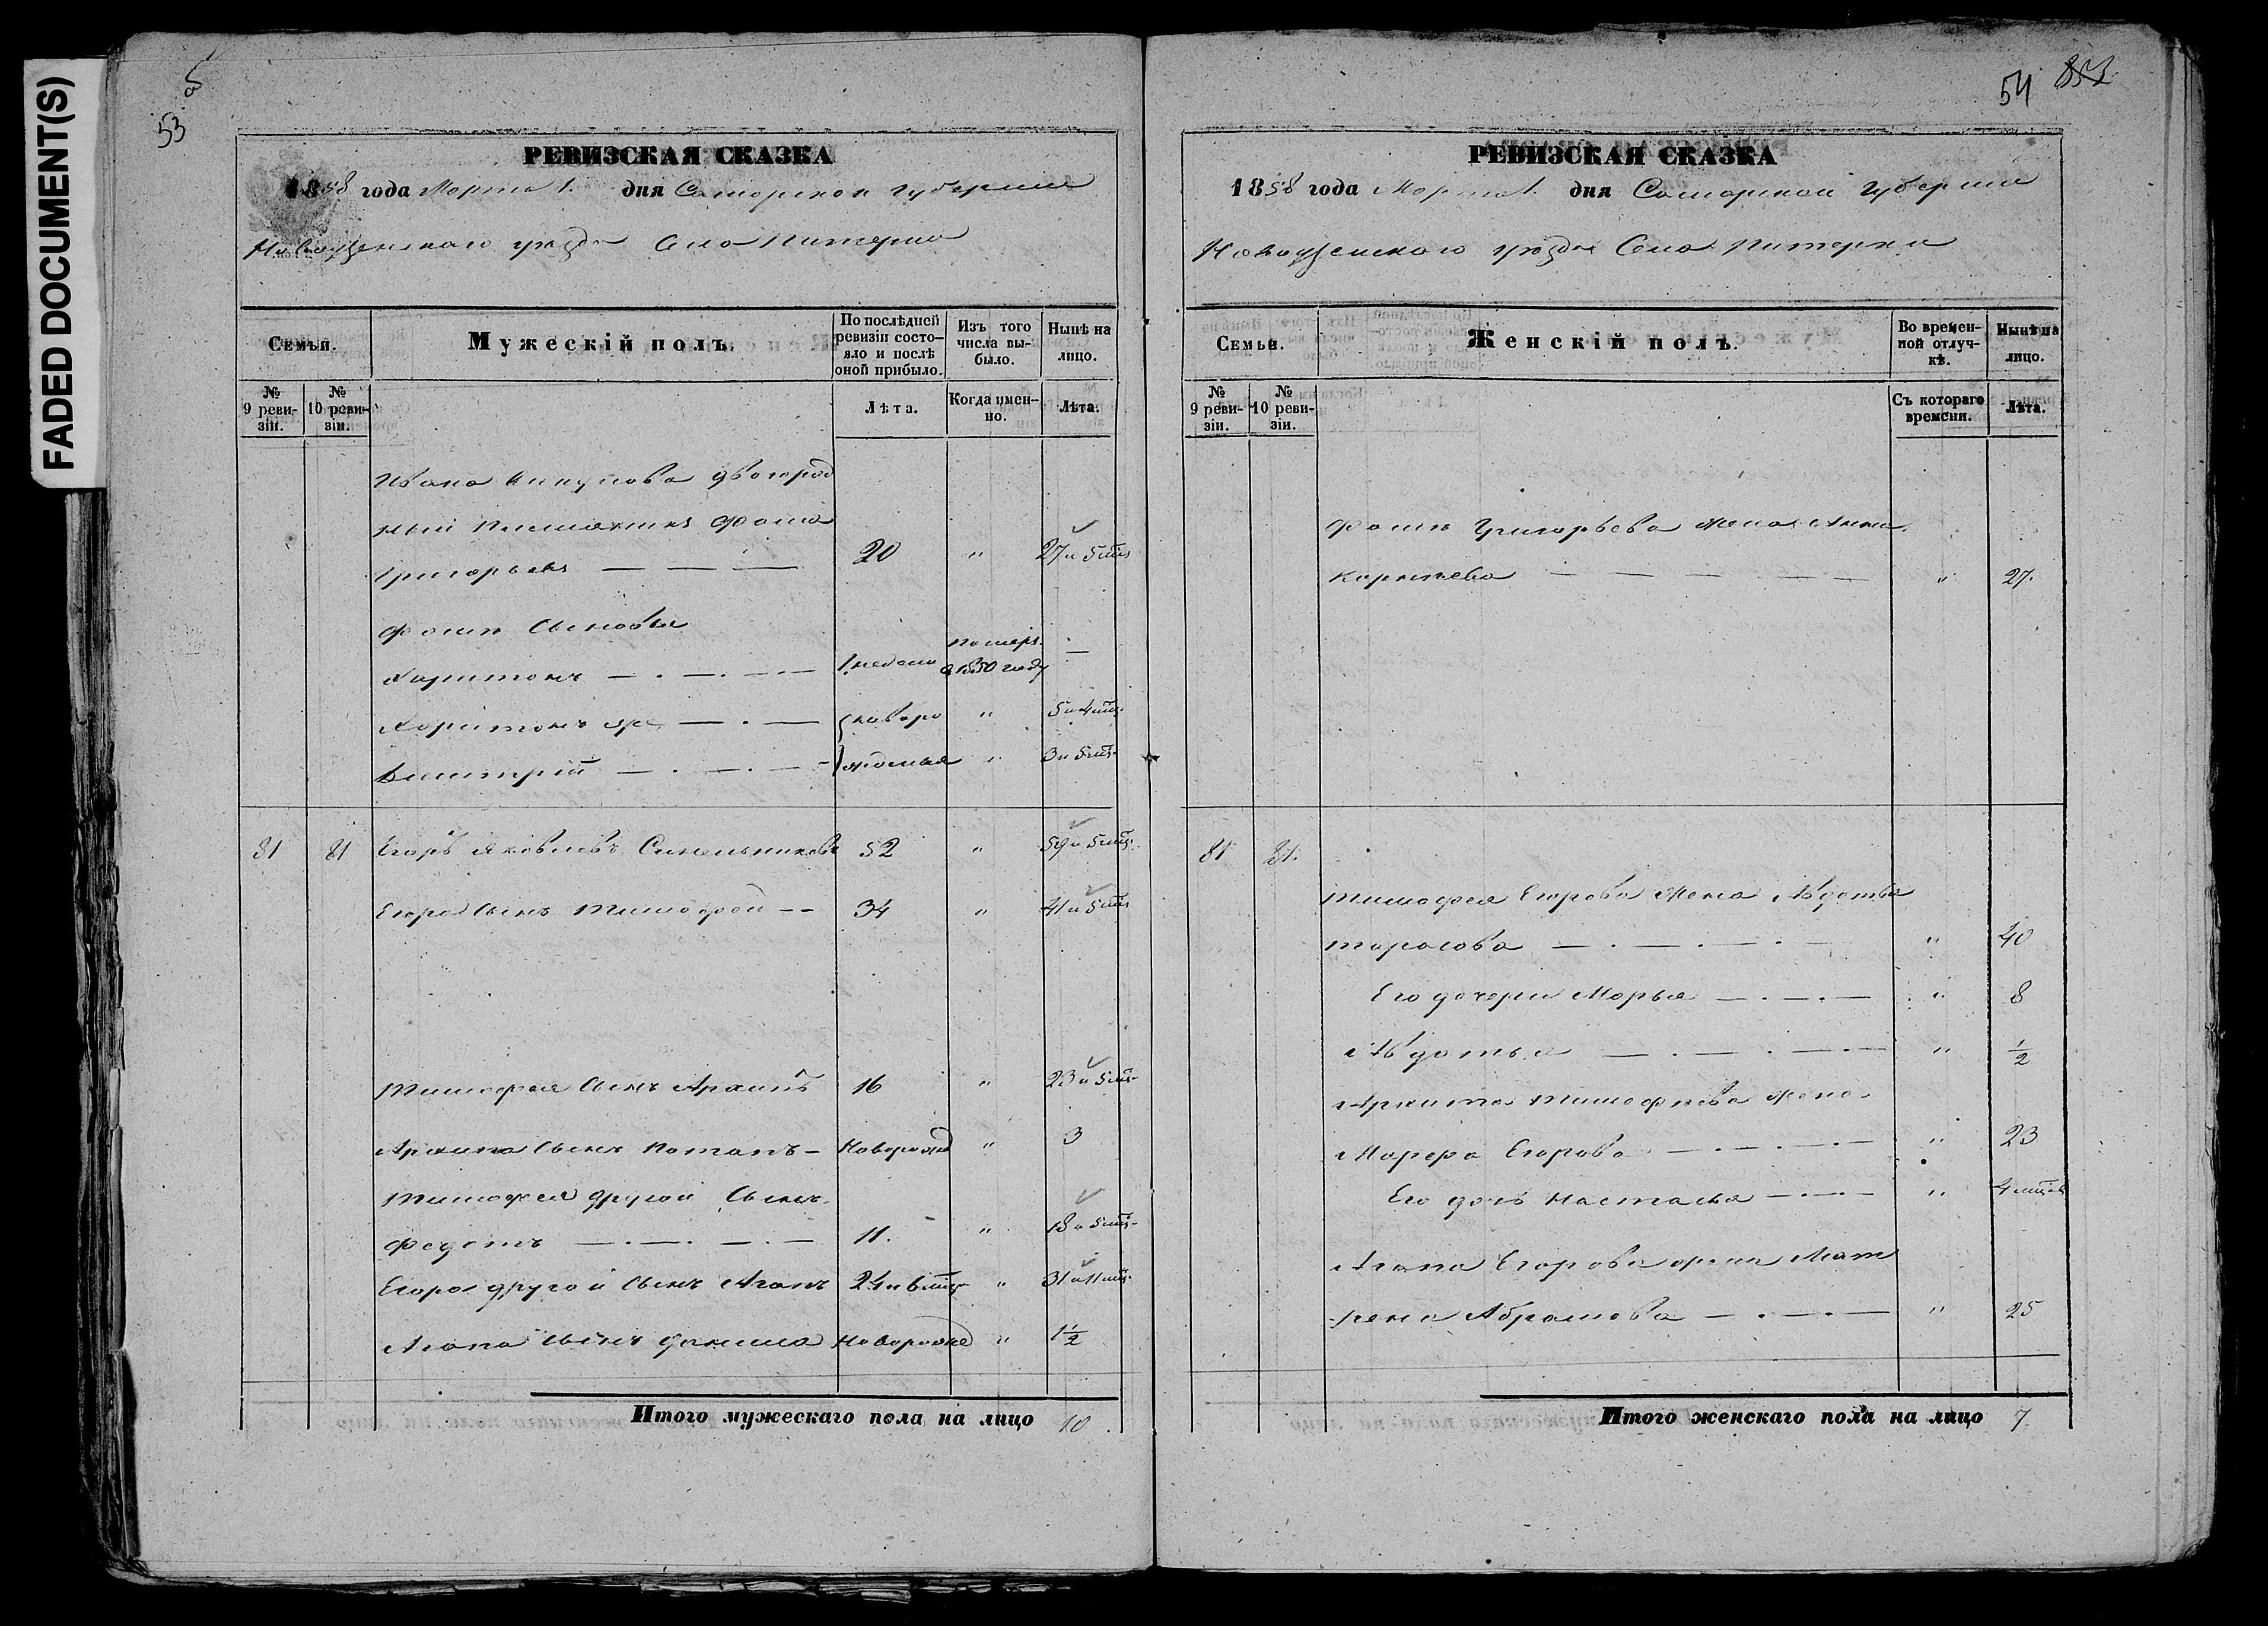 FADED DOCUMENT(S)
53
РЕВИЗСКАЯ СКАЗКА
1858 года Марта 1. дня Самарской Губернии
Новоузенскаго уезда Села Питерки
Семьи.
Мужескій полъ.
По послѣдней ревизіи состояло и послѣ оной прибыло.
Изъ того числа выбыло.
Нынѣ на лицо.
№ 9 ревизіи.
№ 10 ревизіи.
Лѣта.
Когда именно.
Лѣта.
Ивана двоюрод
ный племянникъ Фома
Григорьевъ — — — 20 " 27 и 5 мц
Фомы Сыновья
Харитонъ — . — . — 1 неделя помер. в 1850 году —
Харитонъ — . — новоро " 5 и 4 мц
Дмитрій — . — . — жденныя " 3 и 5 мц
81 81 Егоръ Яковлевъ Синельниковъ 52 " 59 и 5 мц
Егора Сынъ Тимофей — — 34 " 41 и 5 мц
Тимофея Сынъ Архипъ 16 " 23 и 5 мц
Архипа Сынъ Потапъ — Новорожд " 3
Тимофея другой Сынъ
Федотъ — . — . — . — 11. " 18 и 5 мц
Егора другой Сынъ Агапъ 24 и 6 мц " 31 и 11 мц
Агапа сынъ Данила Новорожде " 1 1/2
Итого мужескаго пола на лицо 10
54
РЕВИЗСКАЯ СКАЗКА
1858 года Марта 1. дня Самарской Губернии
Новоузенскаго уезда Села Питерки
Семьи.
Женскій полъ.
Во временной отлучкѣ.
Нынѣ на лицо.
№ 9 ревизіи.
№ 10 ревизіи.
Съ котораго времени.
Лѣта.
Фомы Григорьева жена Анна
— — — — " 27.
81 81.
Тимофея Егорова Жена Авдотья
тарасова — . — . — . — " 40
Его дочери Марья — . — . — " 8
Авдотья — . — . — . — " 1/2
Архипа Тимофеева жена
Егорова — . — . — " 23
Его дочь Настасья — . — . — " 4 мцов
Агапа Егорова жена Мат
рена Абрамова — . — . — " 25
Итого женскаго пола на лицо 7.